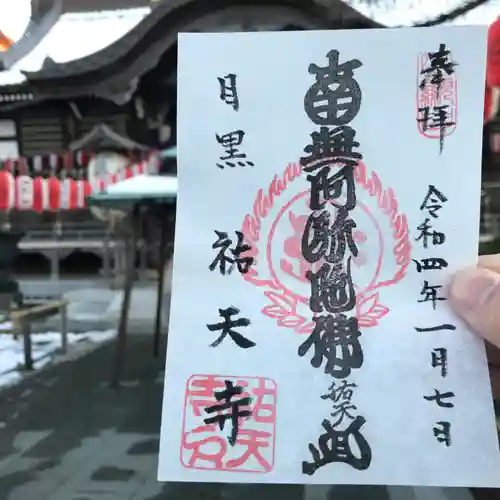 奉拝
令和四年一月七日
南無阿弥陀佛
祐天
目黒
祐天寺